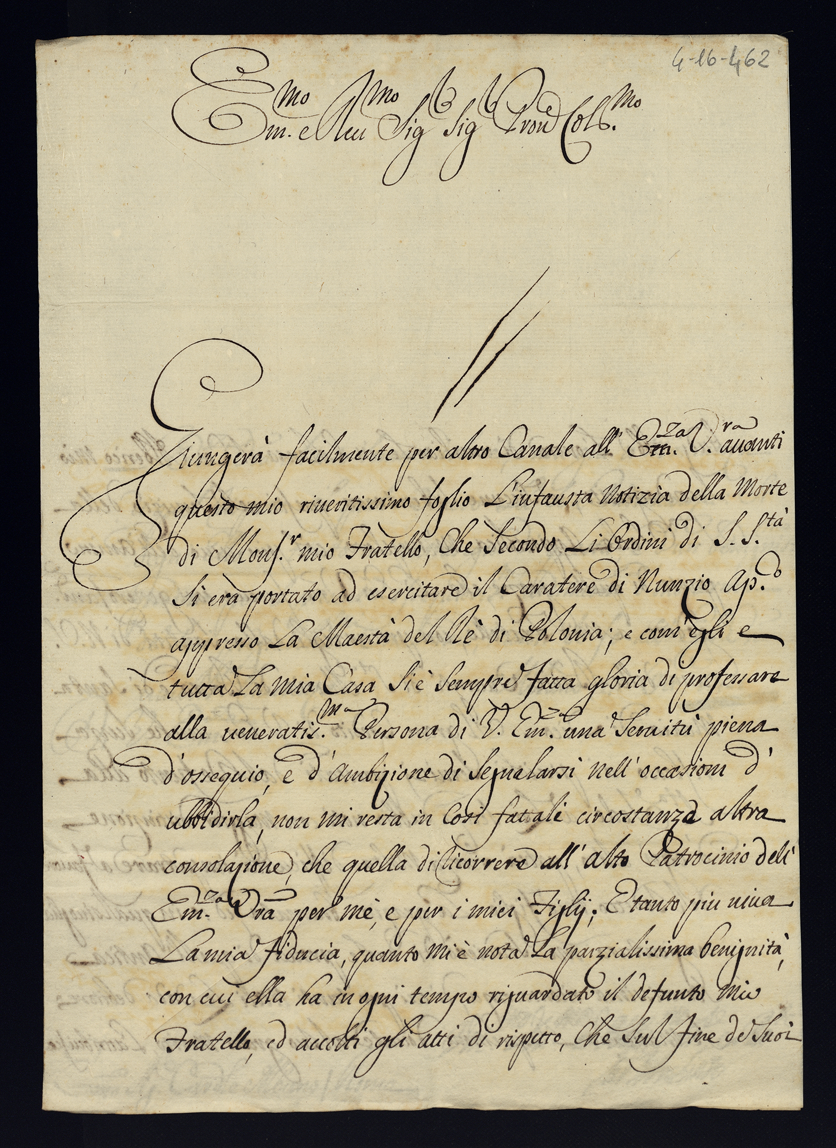 4-16-462
Em.mo e Reu.mo Sig.r Sig.r Prone Col.mo
Giungerà facilmente per altro Canale all' Em.za V.ra auanti
questo mio riueritissimo foglio L'infausta Notizia della Morte
di Mons.r mio Fratello, Che Secondo Li Ordini di S. S.tà
Si era portato ad esercitare il Caratere di Nunzio Ap.o
appresso La Maestà del Rè di Polonia; e com'egli e
tutta La mia Casa Si è Sempre fatta gloria di professare
alla ueneratis.ma Persona di V. Em.za una Seruitù piena
d'ossequio, e d'Ambizione di Segnalarsi nell'occasioni d'
ubbidirla, non mi resta in Così fatali circostanze altra
consolazione, che quella di ricorrere all'alto Patrocinio dell'
Em.za Vra per mè, e per i miei Figlij; E tanto più uiua
La mia fiducia, quanto mi è nota La parzialissima benignità,
con cui ella ha in ogni tempo riguardato il defunto mio
Fratello, ed accolti gli atti di rispetto, Che Sul fine de Suoi